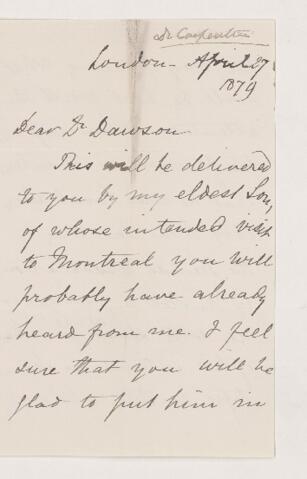 Dr Carpenter
London - April 27
1879
Dear Dr Dawson
This will be delivered
to you by my eldest Son,
of whose intended visit
to Montreal you will
probably have already
heard from me. I feel
sure that you will be
glad to put him in